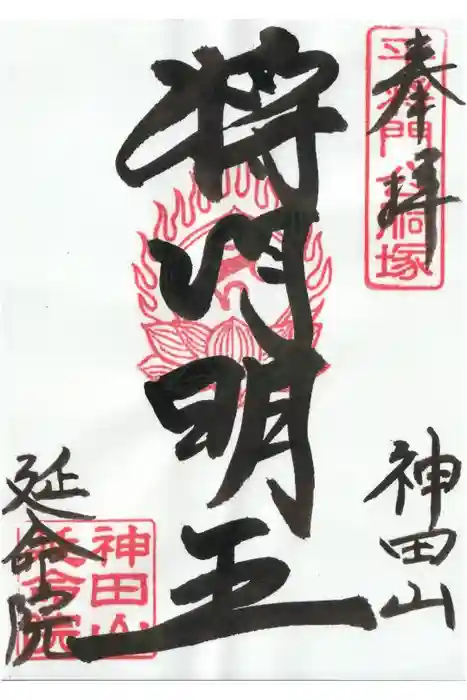 奉拝
平将門 胴塚
神田山
将門明王
延命院
神田山
延命院